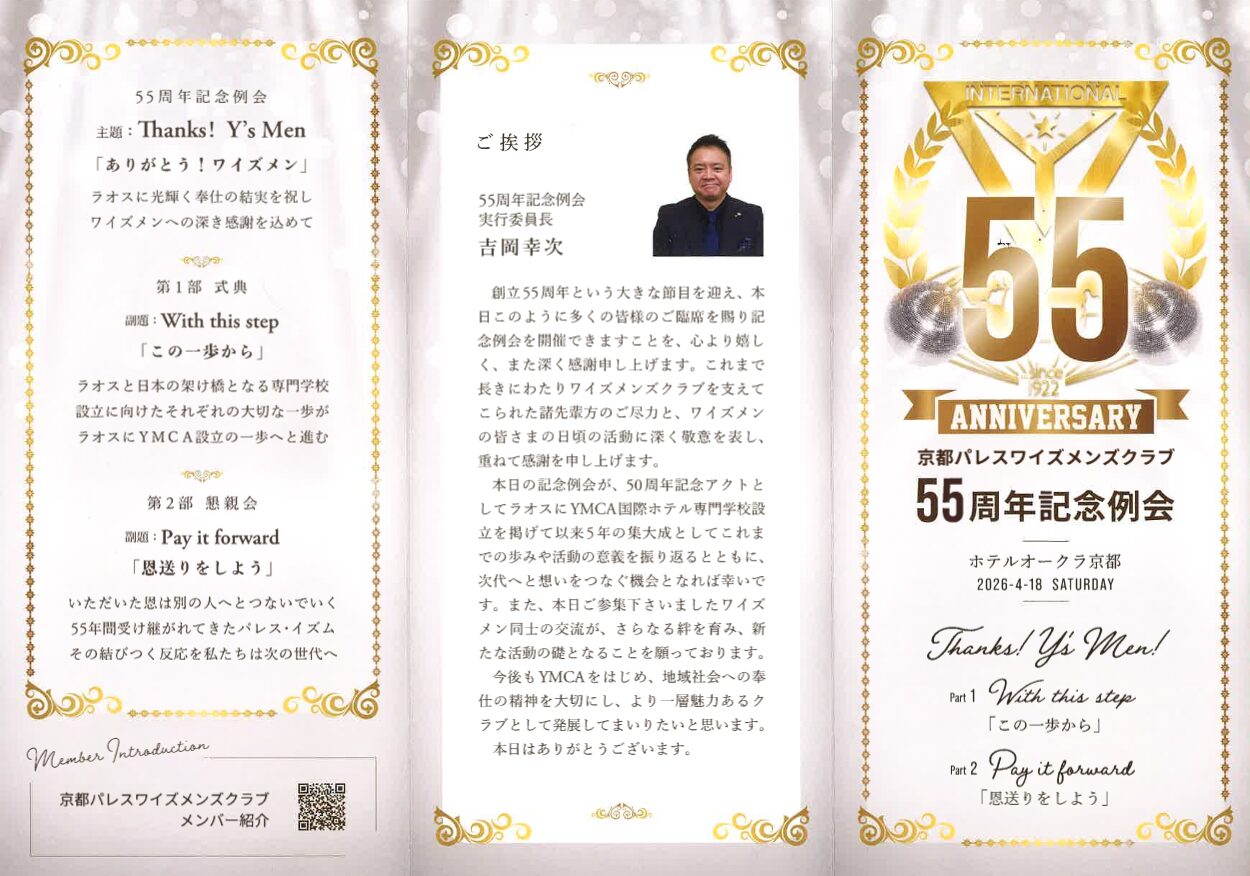 55周年記念例会
主題：Thanks! Y's Men
「ありがとう！ワイズメン」
ラオスに光輝く奉仕の結実を祝し
ワイズメンへの深き感謝を込めて
第1部 式典
副題：With this step
「この一歩から」
ラオスと日本の架け橋となる専門学校
設立に向けたそれぞれの大切な一歩が
ラオスにYMCA設立の一歩へと進む
第2部 懇親会
副題：Pay it forward
「恩送りをしよう」
いただいた恩は別の人へとつないでいく
55年間受け継がれてきたパレス・イズム
その結びつく反応を私たちは次の世代へ
Member Introduction
京都パレスワイズメンズクラブ
メンバー紹介
ご挨拶
55周年記念例会
実行委員長
吉岡幸次
創立55周年という大きな節目を迎え、本
日このように多くの皆様のご臨席を賜り記
念例会を開催できますことを、心より嬉し
く、また深く感謝申し上げます。これまで
長きにわたりワイズメンズクラブを支えて
こられた諸先輩方のご尽力と、ワイズメン
の皆さまの日頃の活動に深く敬意を表し、
重ねて感謝を申し上げます。
本日の記念例会が、50周年記念アクトと
してラオスにYMCA国際ホテル専門学校設
立を掲げて以来5年の集大成としてこれま
での歩みや活動の意義を振り返るとともに、
次代へと想いをつなぐ機会となれば幸いで
す。また、本日ご参集下さいましたワイズ
メン同士の交流が、さらなる絆を育み、新
たな活動の礎となることを願っております。
今後もYMCAをはじめ、地域社会への奉
仕の精神を大切にし、より一層魅力あるク
ラブとして発展してまいりたいと思います。
本日はありがとうございます。
INTERNATIONAL
55
Since
1922
ANNIVERSARY
京都パレスワイズメンズクラブ
55周年記念例会
ホテルオークラ京都
2026-4-18 SATURDAY
Thanks! Y's Men!
Part 1 With this step
「この一歩から」
Part 2 Pay it forward
「恩送りをしよう」